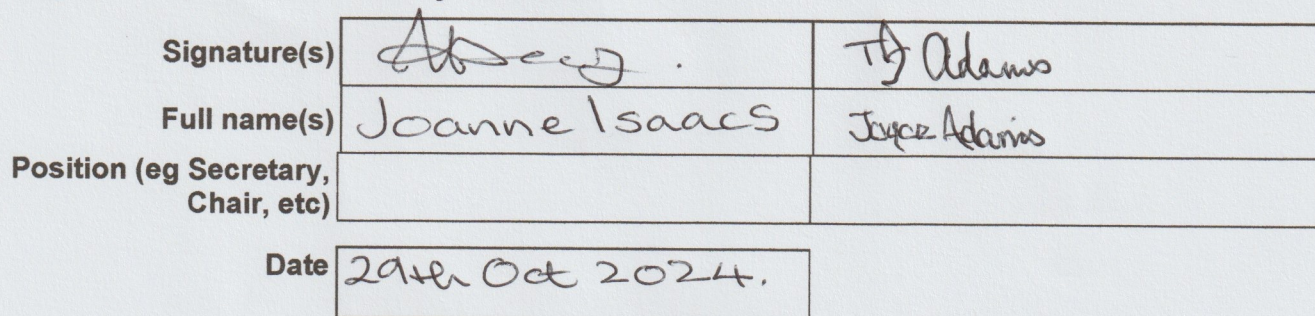 Signature(s) Adams
Full name(s) Joanne Isaacs Joyce Adams
Position (eg Secretary,
Chair, etc)
Date 29th Oct 2024.